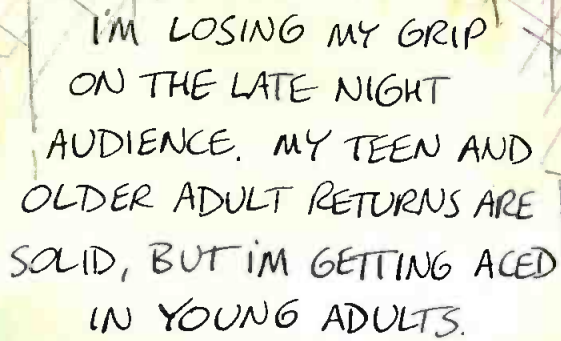 I'M LOSING MY GRIP
ON THE LATE NIGHT
AUDIENCE. MY TEEN AND
OLDER ADULT RETURNS ARE
SOLID, BUT I'M GETTING ACED
IN YOUNG ADULTS.